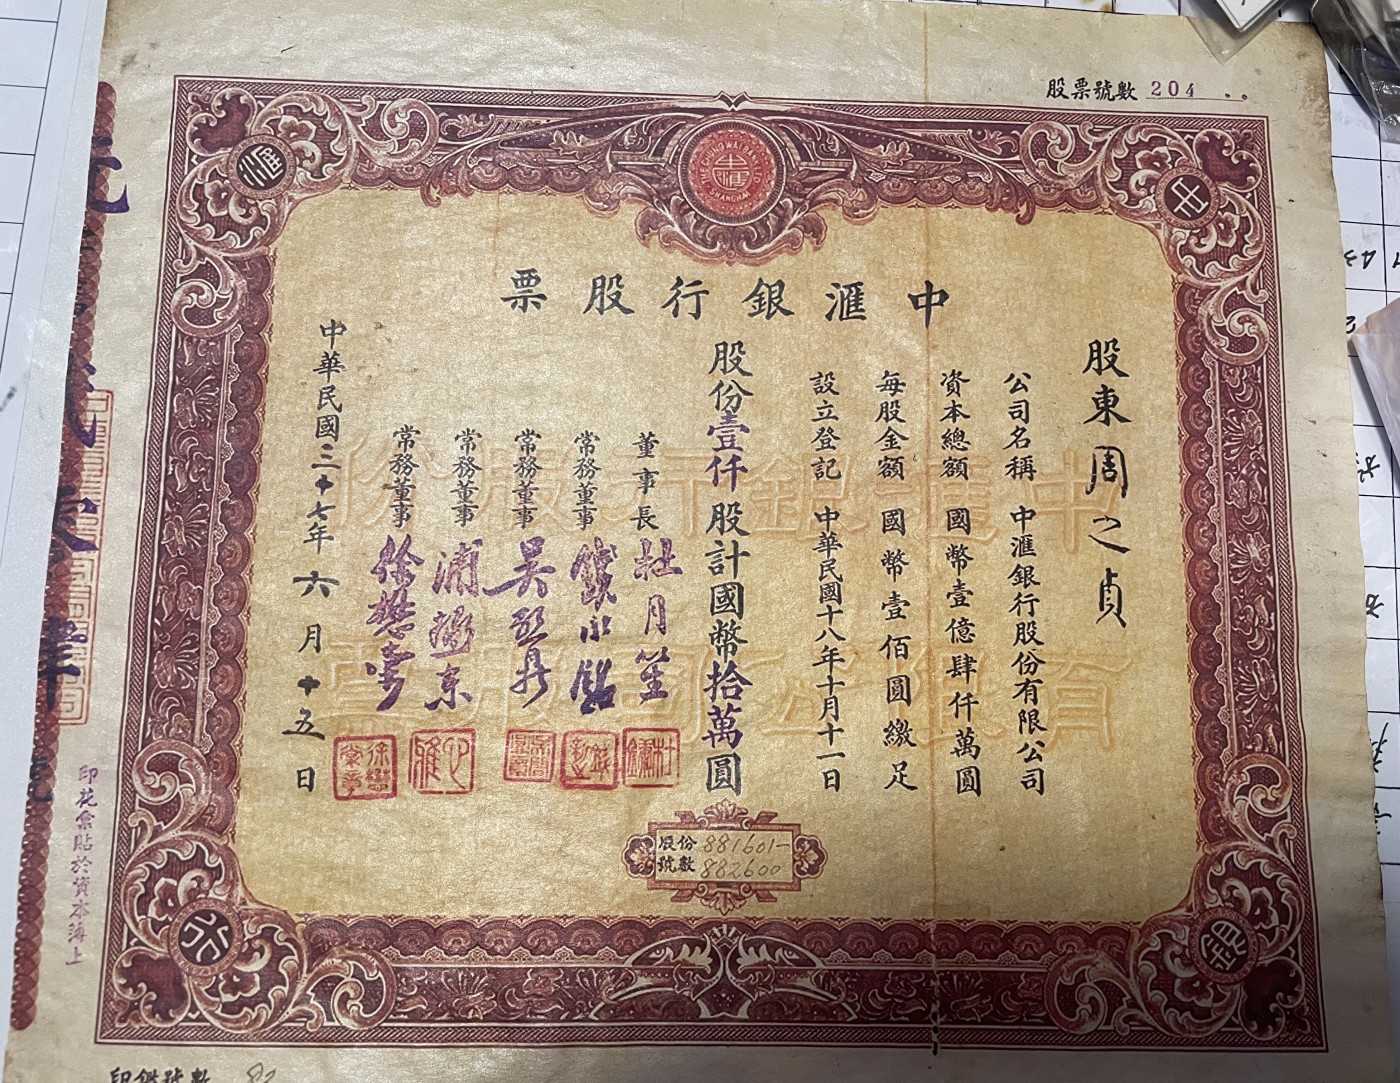 股票號數 204
THE CHUNG WAI BANK
SHANGHAI
中
滙
銀
行
中滙銀行股票
股東 周之貞
公司名稱 中滙銀行股份有限公司
資本總額 國幣壹億肆仟萬圓
每股金額 國幣壹佰圓繳足
設立登記 中華民國十八年十月十一日
股份壹仟股計國幣拾萬圓
董事長 杜月笙
常務董事
常務董事 吳
常務董事 浦拯東
常務董事 徐懋棠
中華民國三十七年六月十五日
中滙銀行股份
有限公司股票
股份號數 881601-
882600
印花稅貼於資本簿上
印鑑號數 82